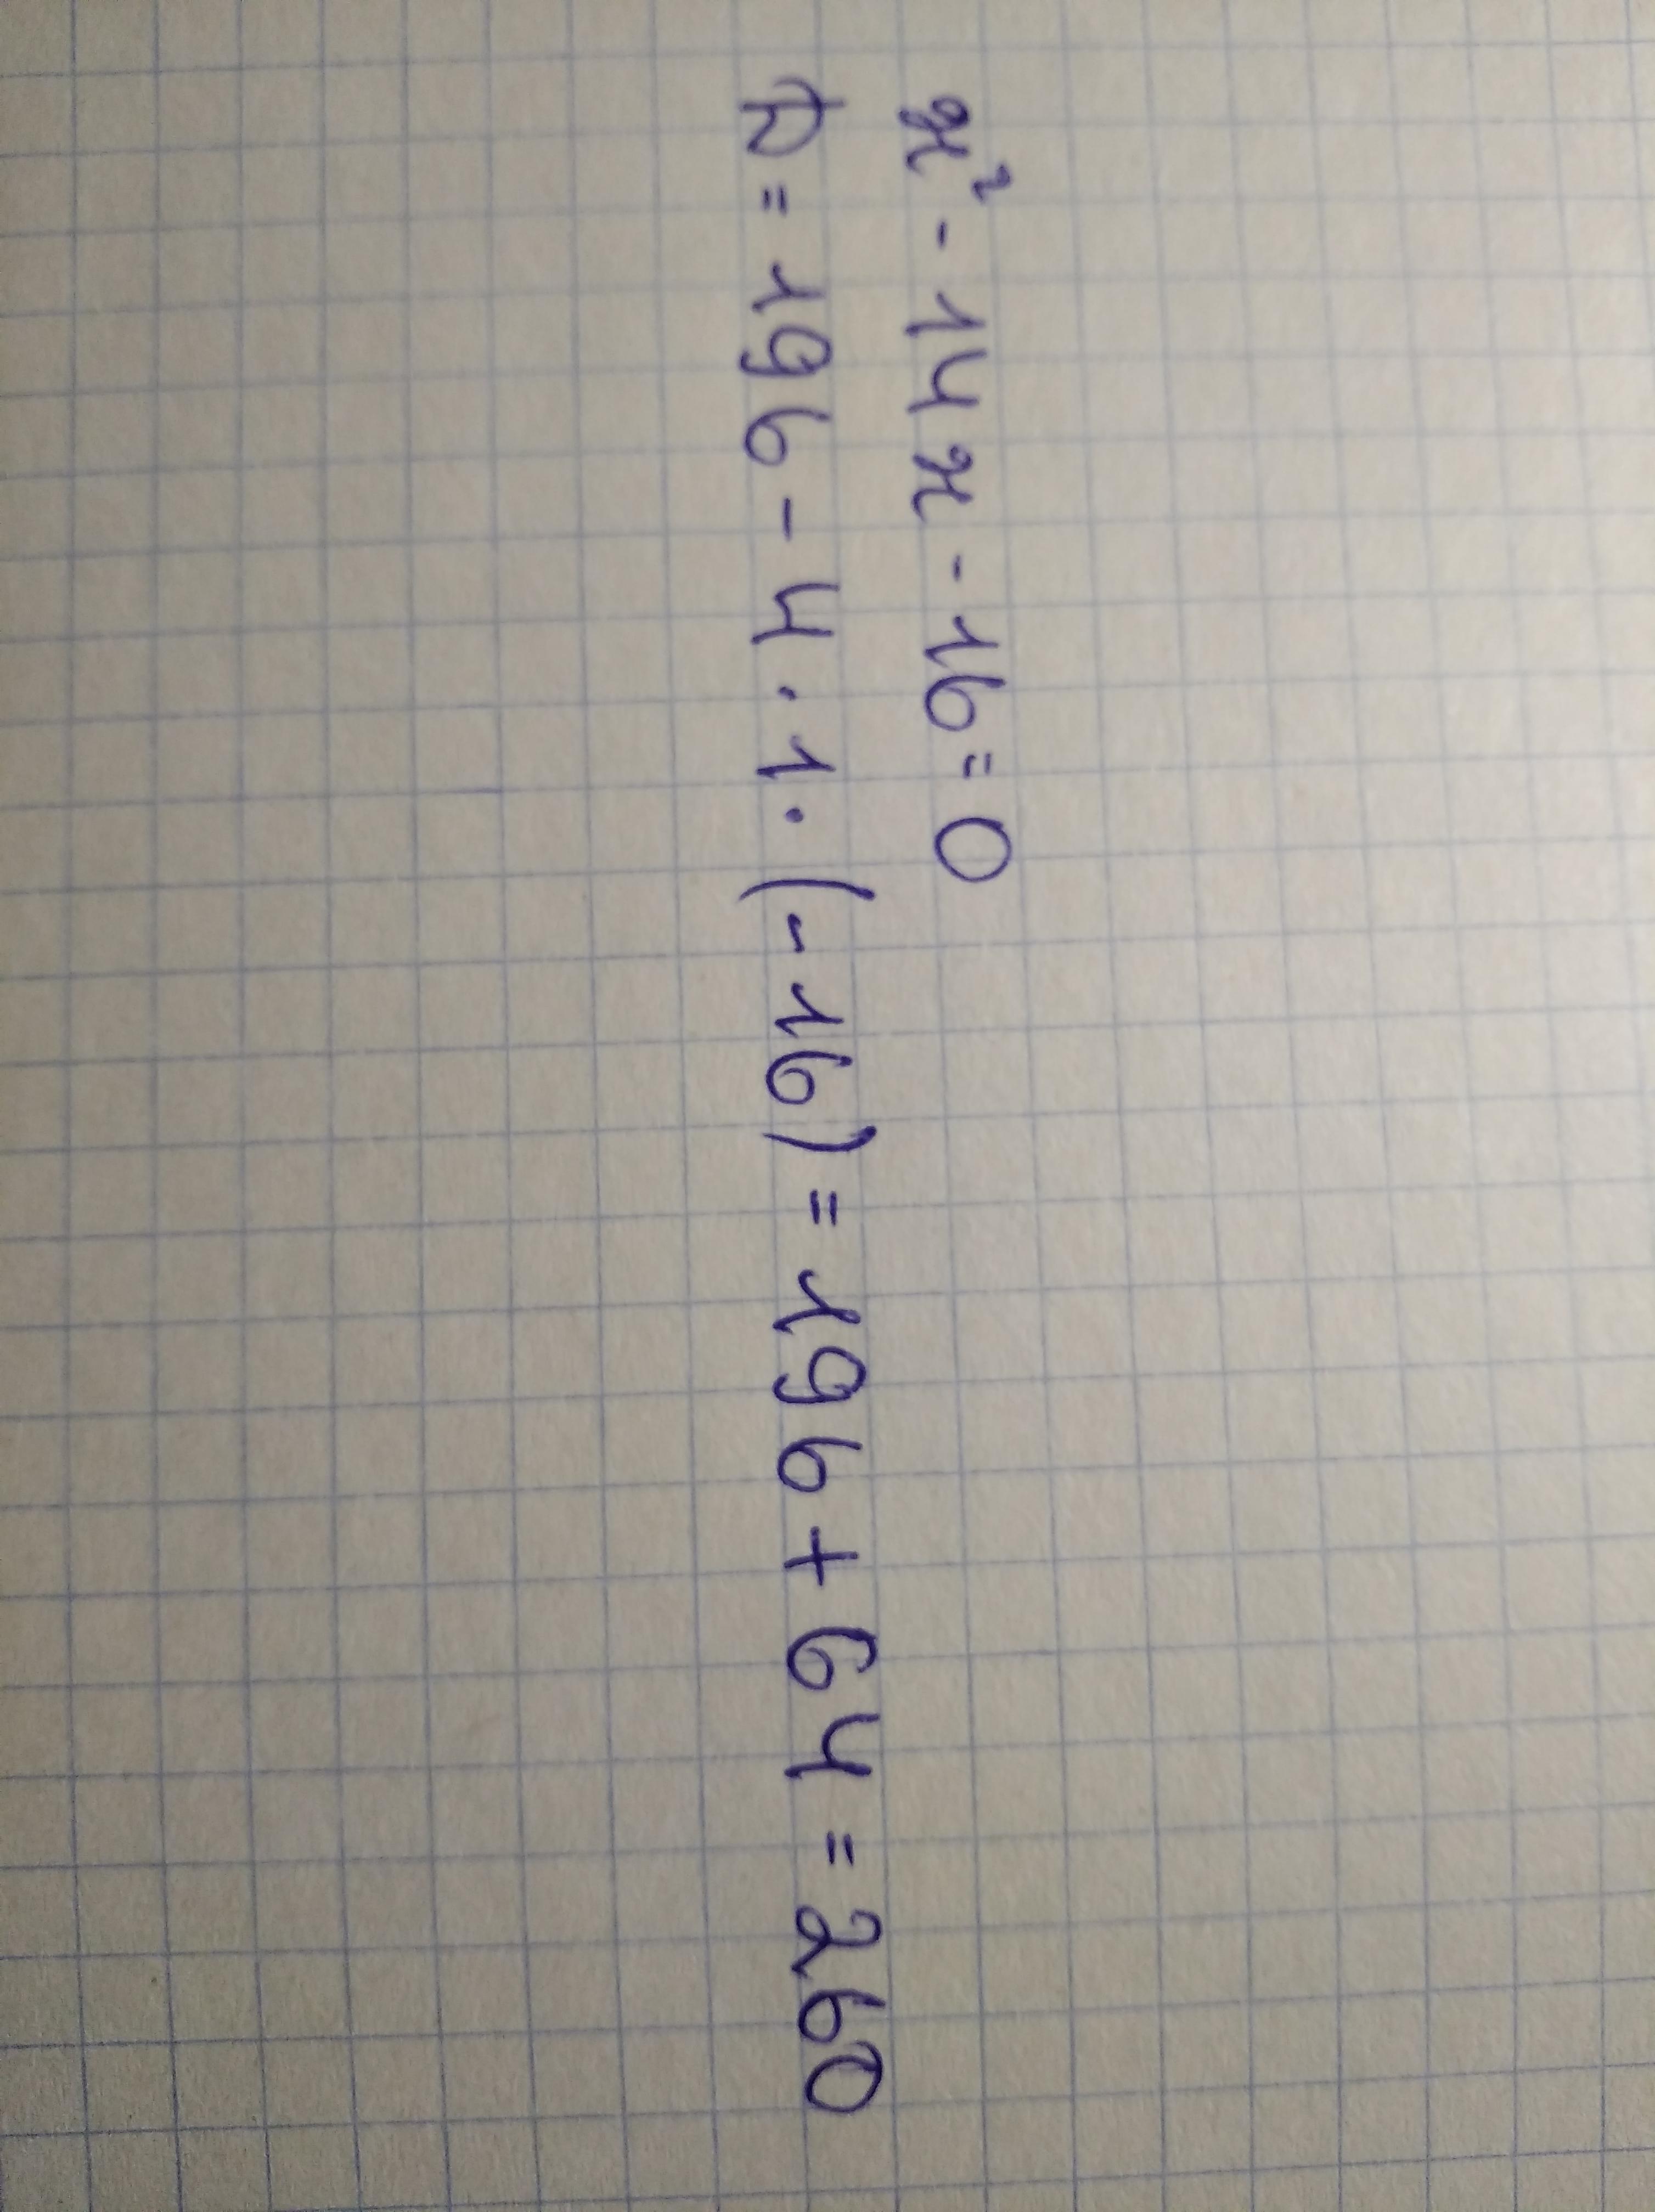 x² - 14x - 16 = 0
D = 196 - 4 · 1 · (-16) = 196 + 64 = 260